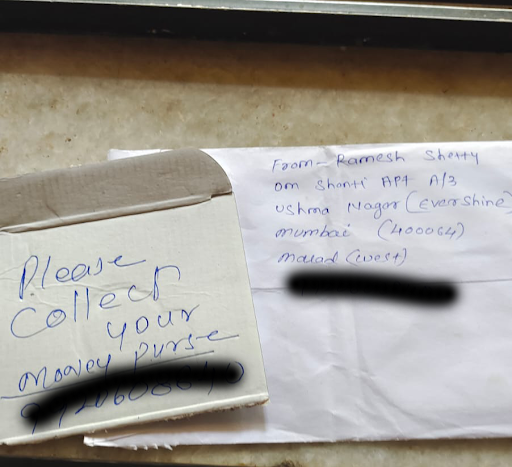 From- Ramesh Shetty
om shanti APt A/3
Ushma Nagar (Evershine)
mumbai (400064)
malad (west)
Please
Collect
your
money purse